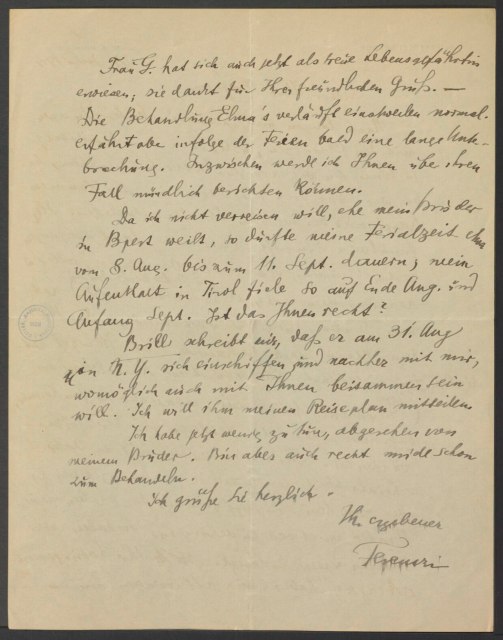 Frau G. hat sich auch jetzt als treue Lebensgefährtin
erwiesen; sie dankt für Ihren freundlichen Gruß. —
Die Behandlung Elma's verläuft einstweilen normal.
erfährt aber infolge der Ferien bald eine lange Unter-
brechung. Inzwischen werde ich Ihnen über ihren
Fall mündlich berichten können.
Da ich nicht verreisen will, ehe mein Bruder
in Bpest weilt, so dürfte meine Ferialzeit etwa
vom 8. Aug. bis zum 11. Sept. dauern; mein
Aufenthalt in Tirol fiele so auf Ende Aug. und
Anfang Sept. Ist das Ihnen recht?
Brill schreibt mir, daß er am 31. Aug
in N.Y. sich einschiffen und nachher mit mir,
womöglich auch mit Ihnen beisammen sein
will. Ich will ihm meinen Reiseplan mitteilen.
Ich habe jetzt wenig zu tun, abgesehen von
meinem Bruder. Bin aber auch recht müde schon
zum Behandeln.
Ich grüße Sie herzlich.
Ihr ergebener
Ferenczi